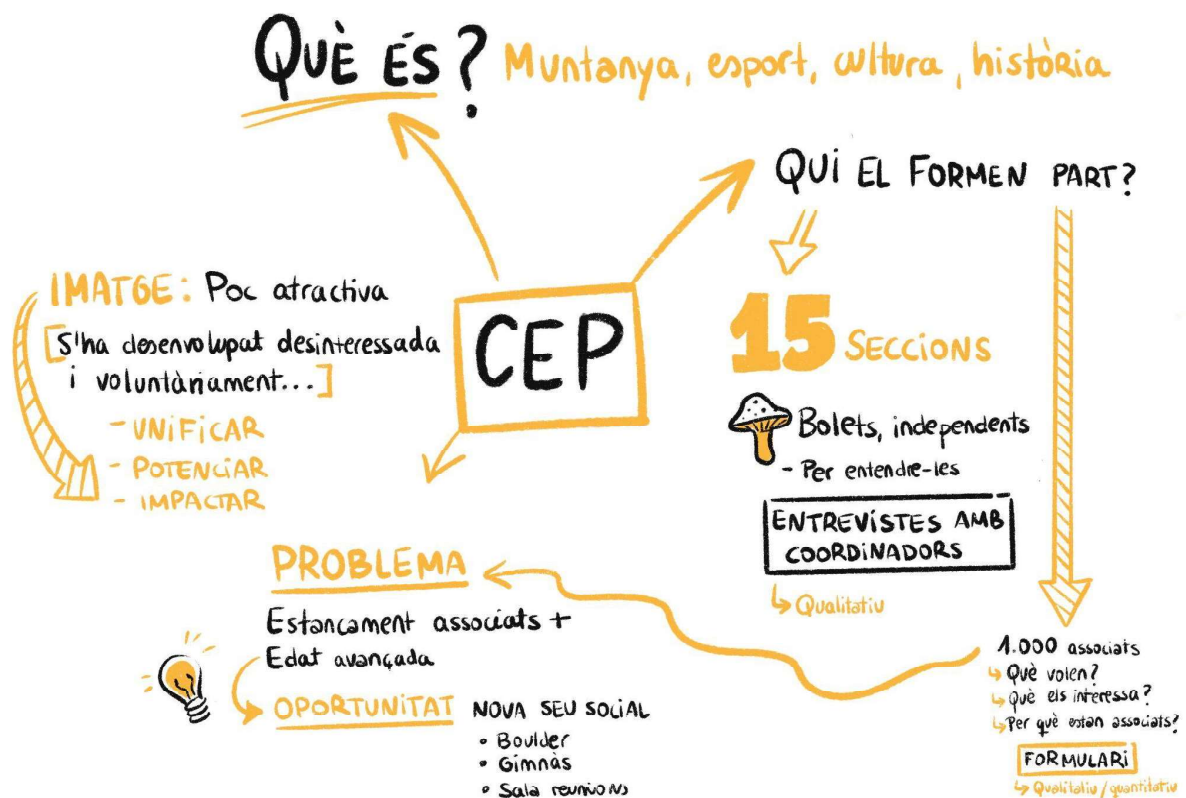 QUÈ ÉS? Muntanya, esport, cultura, història
QUI EL FORMEN PART?
IMATGE: Poc atractiva
[S'ha desenvolupat desinteressada
i voluntàriament...]
- UNIFICAR
- POTENCIAR
- IMPACTAR
CEP
15 SECCIONS
Bolets, independents
- Per entendre-les
ENTREVISTES AMB
COORDINADORS
Qualitatiu
PROBLEMA
Estancament associats +
Edat avançada
OPORTUNITAT NOVA SEU SOCIAL
• Boulder
• Gimnàs
• Sala reunions
1.000 associats
Què volen?
Què els interessa?
Per què estan associats?
FORMULARI
Qualitatiu/quantitatiu